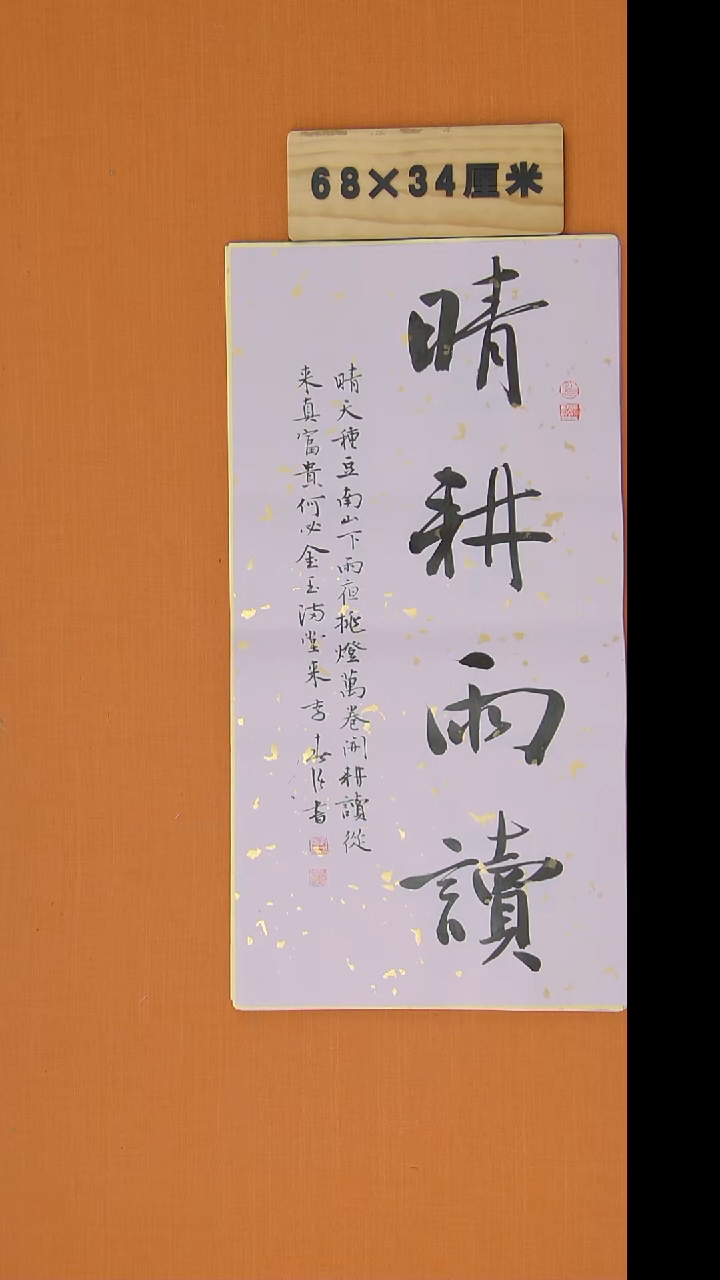 68×34厘米
晴耕雨讀
晴天種豆南山下雨夜挑燈萬卷開耕讀從
来真富貴何必金玉满堂来
书